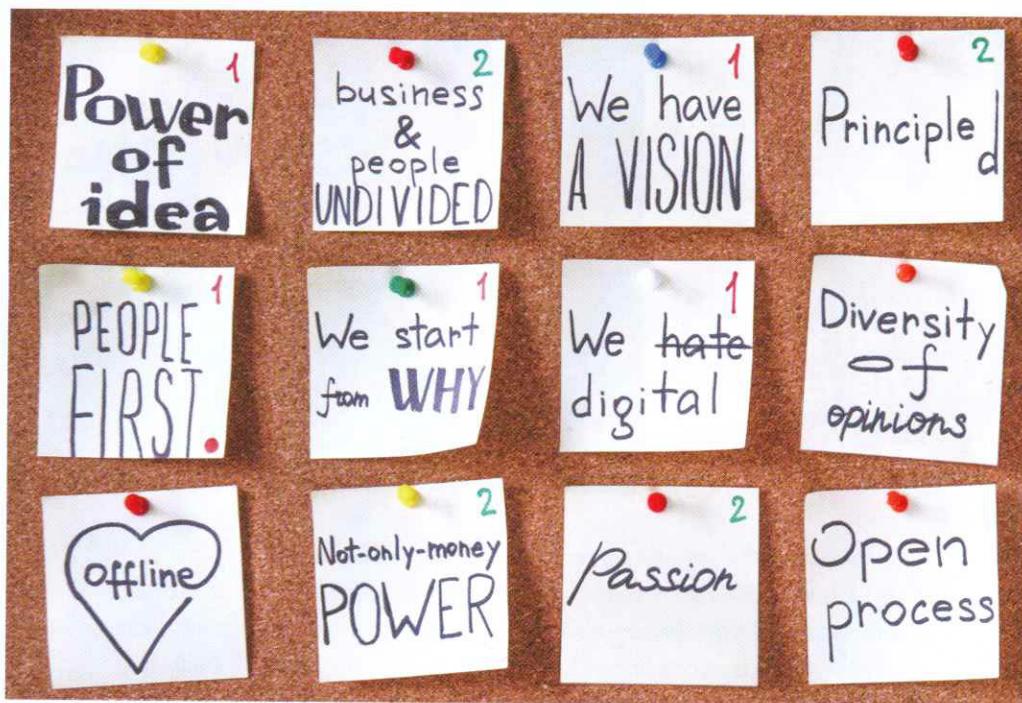 1
Power
of
idea
2
business
&
people
UNDIVIDED
1
We have
A VISION
2
Principled
1
PEOPLE
FIRST.
1
We start
from WHY
1
We hate
digital
Diversity
of
opinions
offline
2
Not-only-money
POWER
2
Passion
Open
process